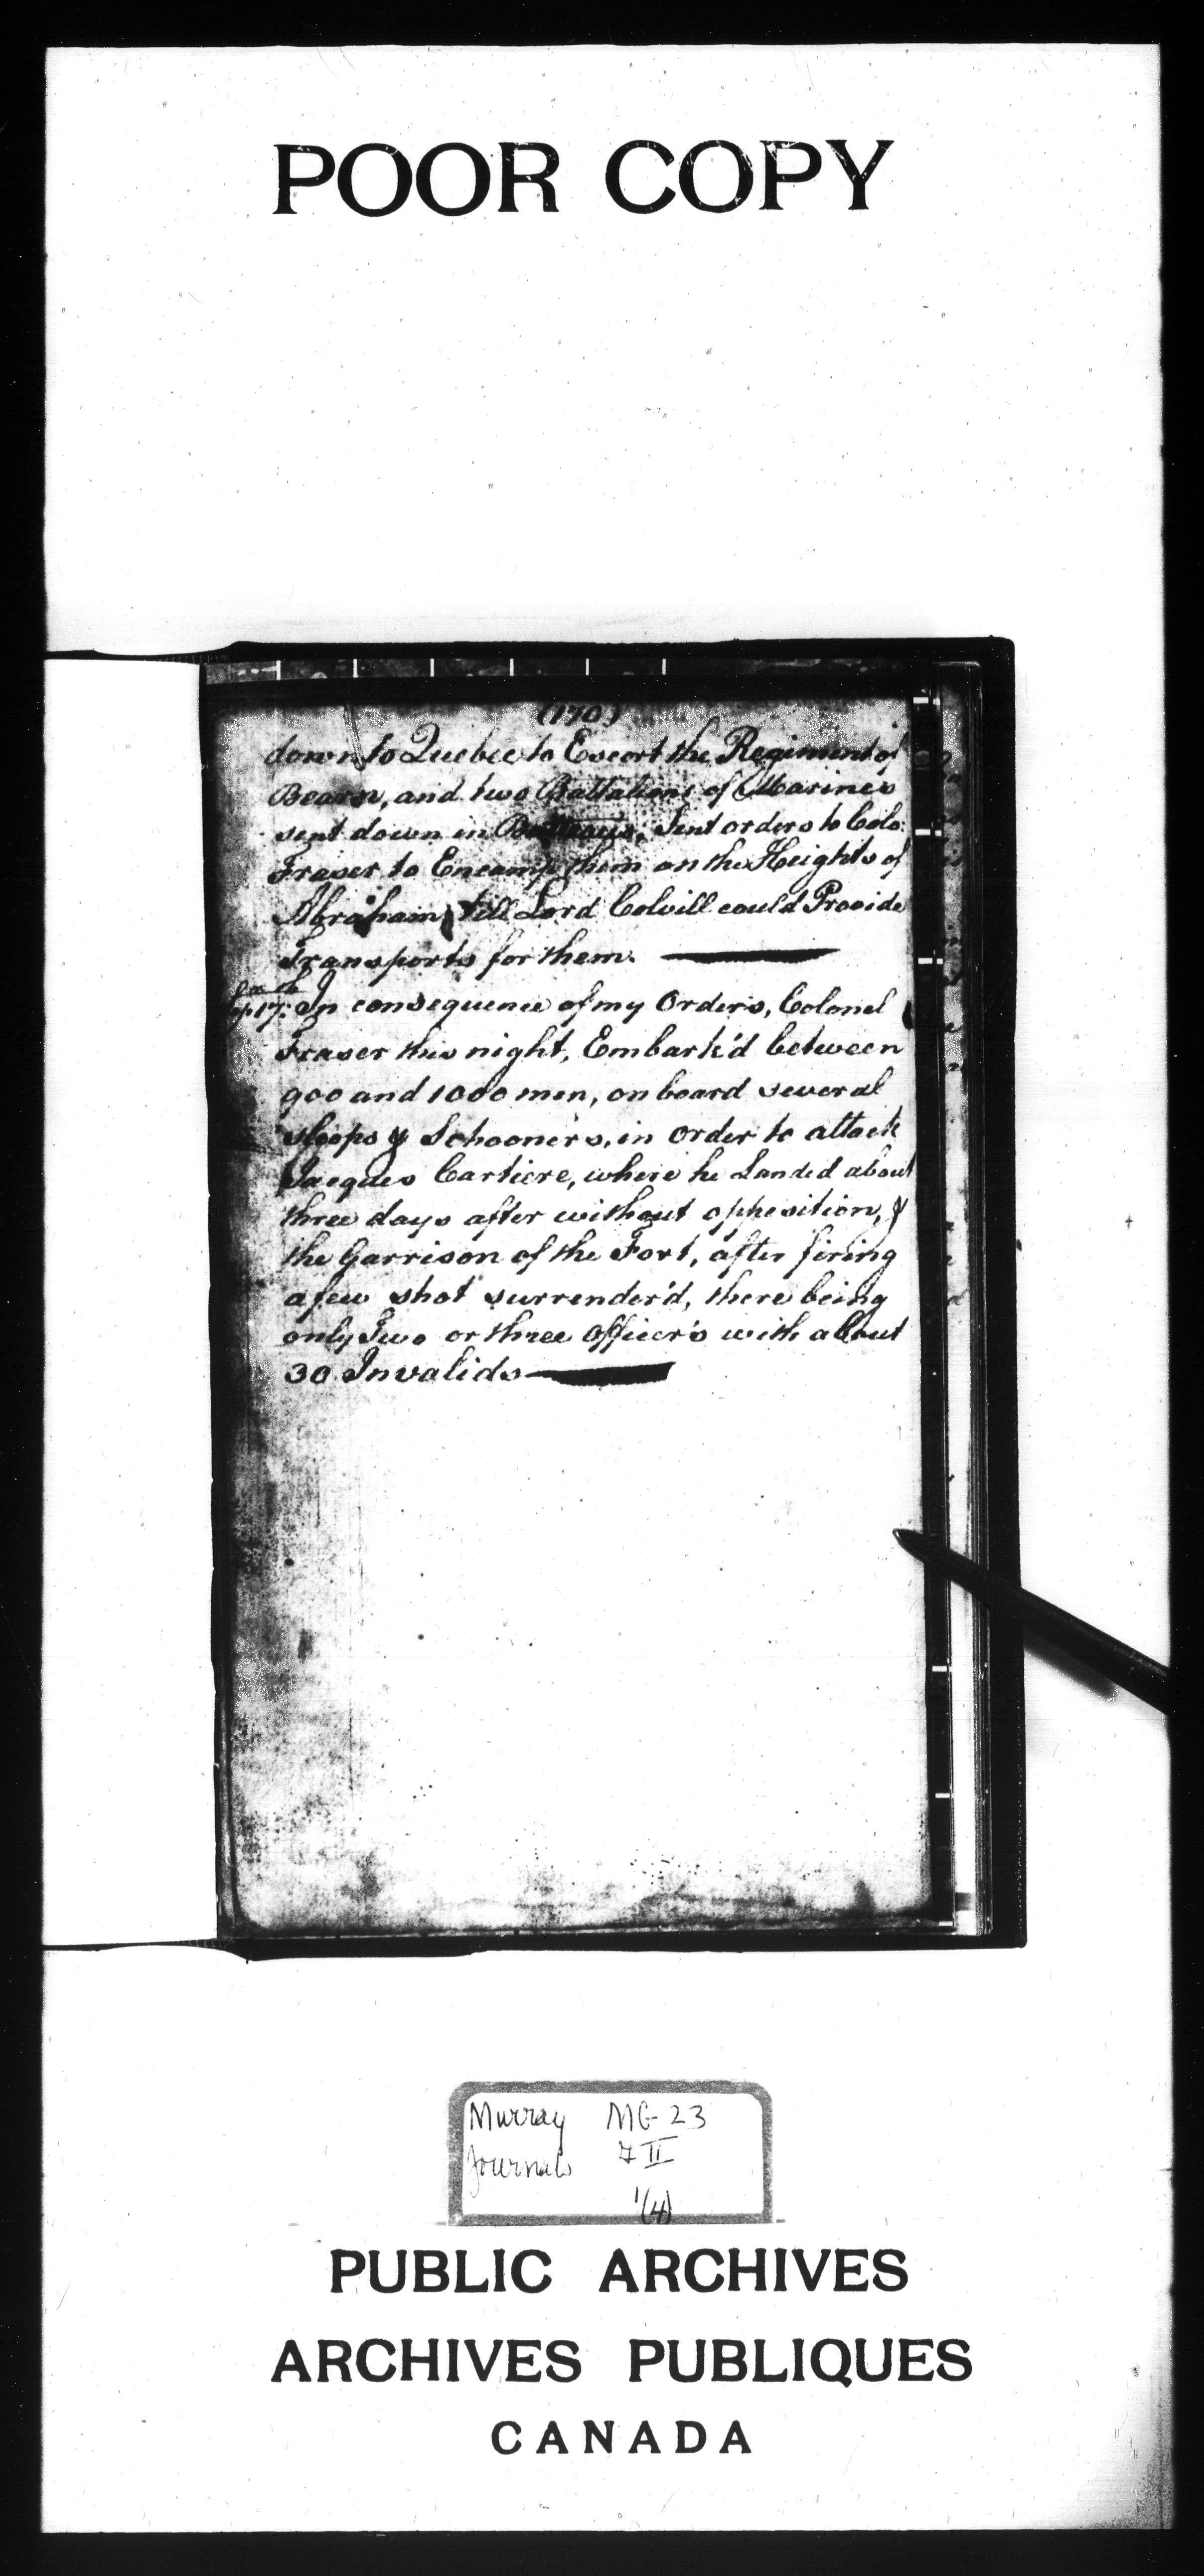 POOR COPY
(170)
down to Quebec to Escort the Regiment of
Bearn, and two Battalions of Marine's
sent down in Batteaus; Sent orders to Colo:
Fraser to Encamp them on the Heights of
Abraham, till Lord Colvill could Provide
Transports for them.
17. In consequence of my Orders, Colonel
Fraser this night, Embark'd between
900 and 1000 men, on board several
sloops & Schooner's, in order to attack
Jacques Cartiere, where he Landed about
three days after without opposition, &
the Garrison of the Fort, after firing
a few shot surrender'd, there being
only Two or three officer's with about
30 Invalids
Murray MG 23
Journals II
1(4)
PUBLIC ARCHIVES
ARCHIVES PUBLIQUES
CANADA